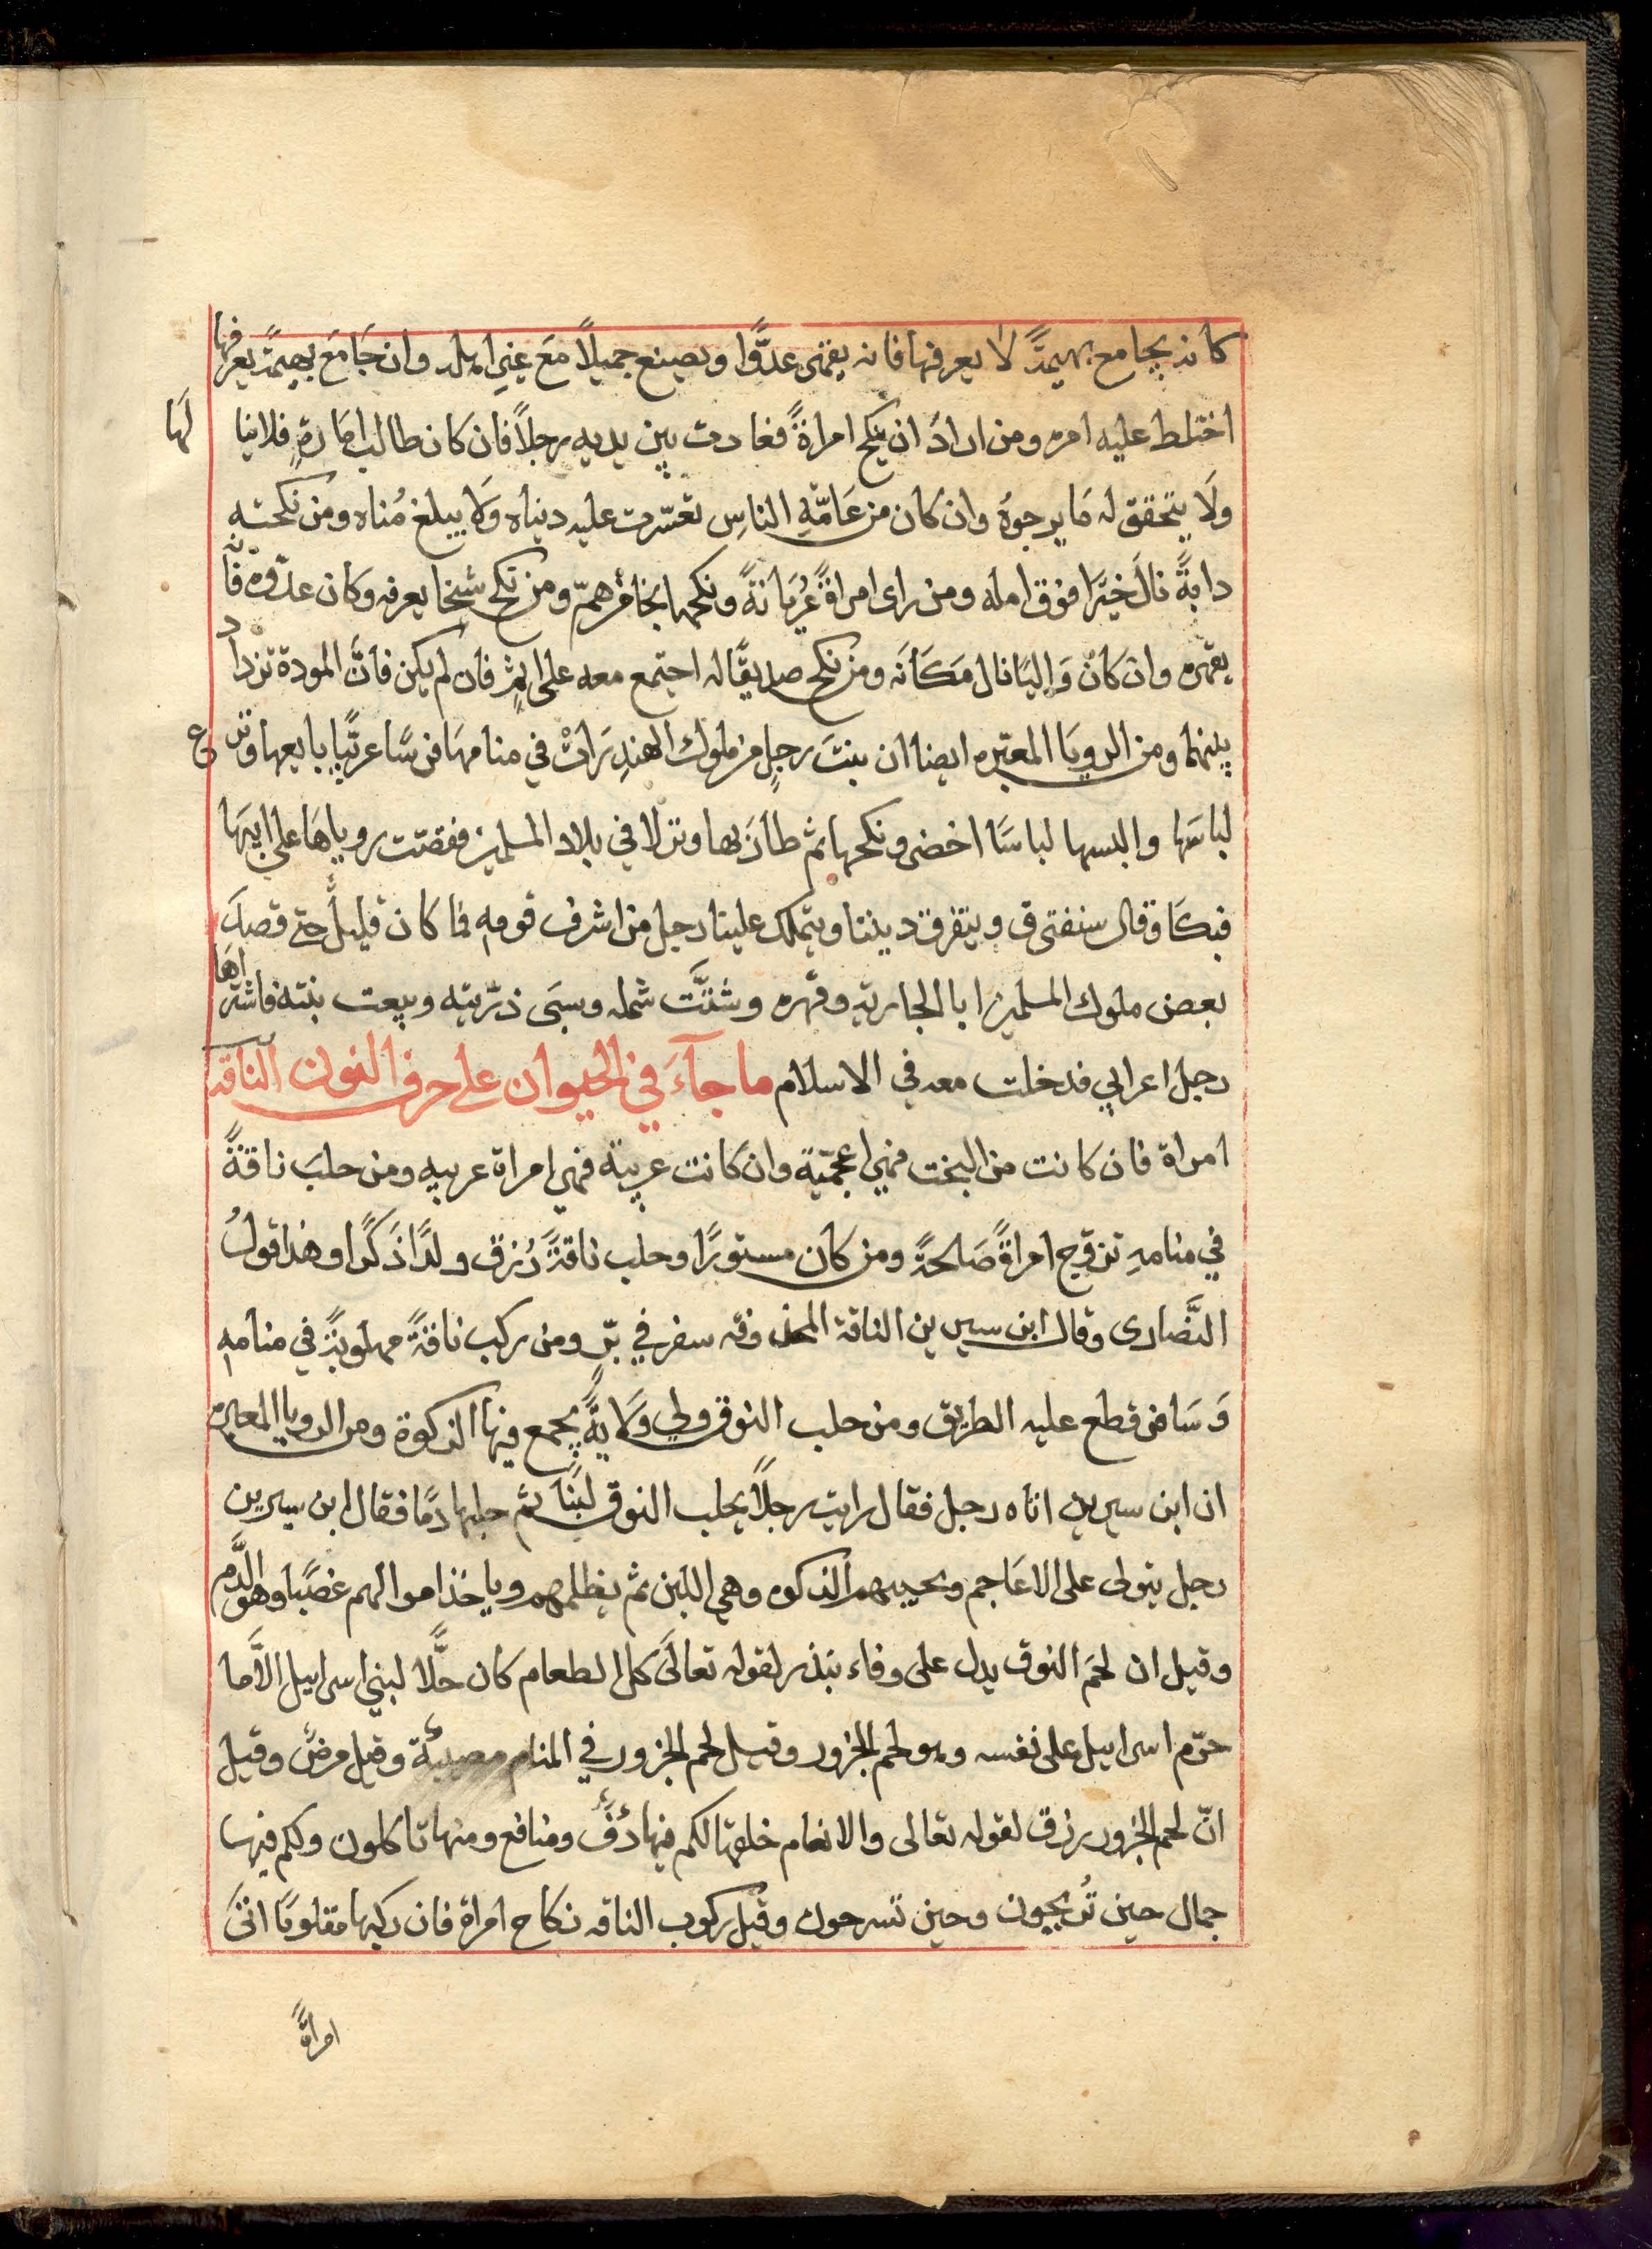 كانه يجامع بهيمةً لا يعرفها فانه يقهى عدوًّا ويصنع جميلاً مع غير اهله وان جَامَع بهيمةً يعرفها
اختلط عليه امره ومن ارادَ ان ينكح امراةً فعادت بين يديه رجلاً فان كان طالب امارةٍ فلا ينالها
ولَا يتحقق له مَا يرجوهُ وان كان من عَامّةِ الناسِ تعسّرت عليه دنياه وَلا يبلغ مُناه ومن نكحته
دابةً نالَ خيرًا فوق امله ومن راى امراةً عُريَانةً ونكحها نجا من همّ ومن نكح شخا يعرفه وكان عدوّه فانّه
يقهره وان كانَ وَاليًا نال مَكَانَه ومن نكح صديقًا له اجتمع معه على اثمٍ فان لم يكن فانَّ المودة تزداد
بينهما ومن الرويَا المعبّره ايضا ان بنتَ رجلٍ من ملوك الهندِ رَاتْ في منامهَا فرسًا عربيًّا يبايعها ونزع
لباسَها والبسها لباسًا اخضر ونكحها ثم طارَ بها ونزلا في بلاد المسلمين فقصّت روياهَا على ابيهَا
فبكَا وقال سنفترق ويتفرق ديننا ويتملك علينا رجل من اشرف قومهِ فما كان قليلٌ حتى قصدَ
بعض ملوك المسلمين ابا الجاريةِ وقهره وشتَّت شمله وسبَى ذرّيته وبيعت بنته فاشتراها
رجل اعرابي فدخلت معه في الاسلام ما جآءَ في الحيوان على حرف النون الناقه
امراة فان كانت من البخت فهي اعجميّة وان كانت عربية فهي امراة عربيه ومن حلبَ ناقةً
في منامهِ تزوّج امراةً صَالحةً ومن كان مستورًا وحلب ناقةً رُزق ولدًا ذَكرًا وهذا قولُ
النَّصارى وقال ابن سيرين الناقة المحذوفه سفر في برٍّ ومن ركب ناقةً مهلوبةً في منامهِ
وَسَافر قطع عليه الطريق ومن حلب النوق ولي وَلايةً يجمع فيها الزكوة ومن الرويا المعبره
ان ابن سيرين اتاه رجل فقال رايت رجلاً يحلب النوق لبنًا ثم حلبها دمًا فقال ابن سيرين
رجل يتولى على الاعَاجم ويجيبهم الزكوه وهي اللبن ثم يظلمهم وياخذ اموالهم غصبًا وهو الدَّم
وقيل ان لحمَ النوق يدل على وفاء بنذر لقوله تعالَى كل الطعام كان حلًّا لبني اسراييل الاّ ما
حرّم اسراييل على نفسه وهو لحم الجزور وقيل لحم الجزور في المنام مصيبةٌ وقيل مرضٌ وقيل
انّ لحم الجزور رزق لقوله تعالى والانعام خلقها لكم فيها دفٌ ومنافع ومنها تاكلون ولكم فيها
جمال حين تُريحون وحين تسرحون وقيل ركوب الناقه نكاح امراة فان ركبها مقلوبًا اتَى
امراةً